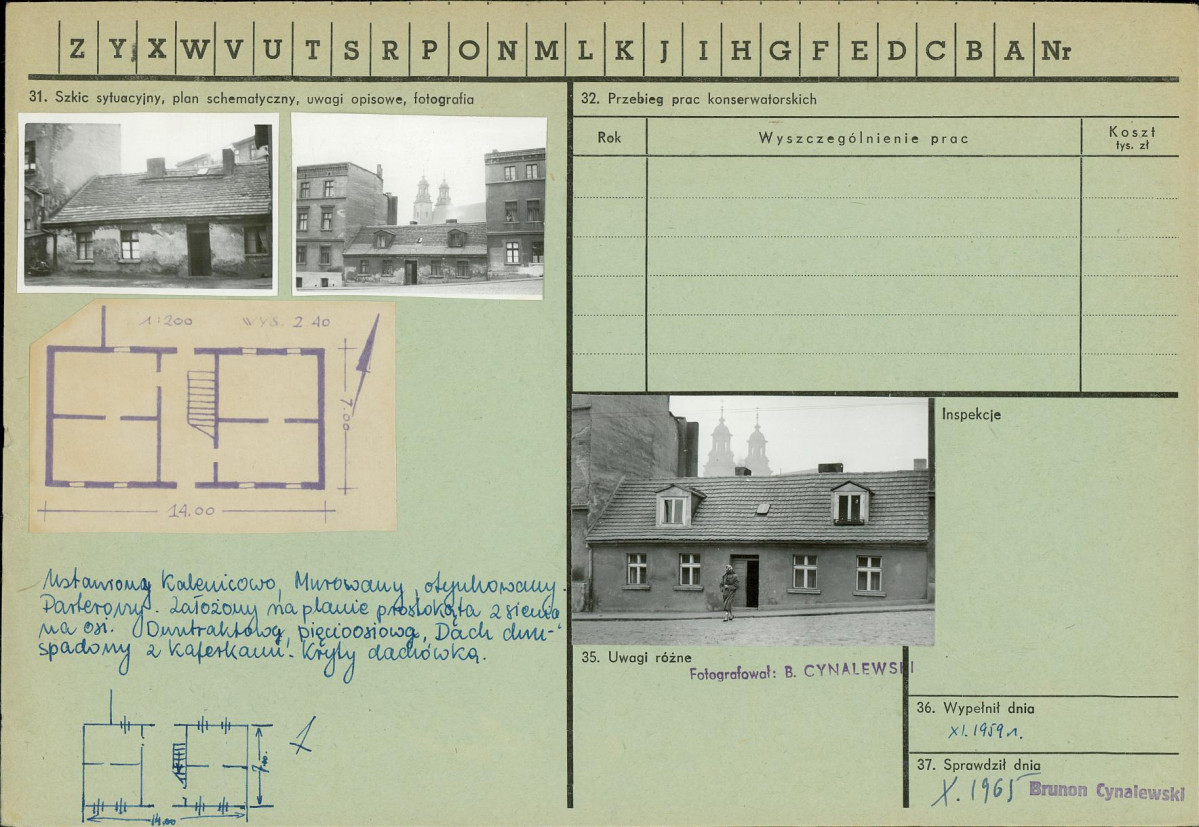 Z Y X W V U T S R P O N M L K J I H G F E D C B A Nr
31. Szkic sytuacyjny, plan schematyczny, uwagi opisowe, fotografia
1:200 WYS. 2 40
7.00
14.00
Ustawiony Kalenicowo, Murowany, otynkowany.
Parterowy. Założony na planie prostokąta z sienią
na osi. Dwutraktowy, pięcioosiowy, Dach dwu-
spadowy z kaferkami. Kryty dachówką.
7.00
14.00
32. Przebieg prac konserwatorskich
Rok Wyszczególnienie prac Koszt
tys. zł
Inspekcje
35. Uwagi różne
Fotografował: B. CYNALEWSKI
36. Wypełnił dnia
XI. 1959 r.
37. Sprawdził dnia
X. 1965 Brunon Cynalewski